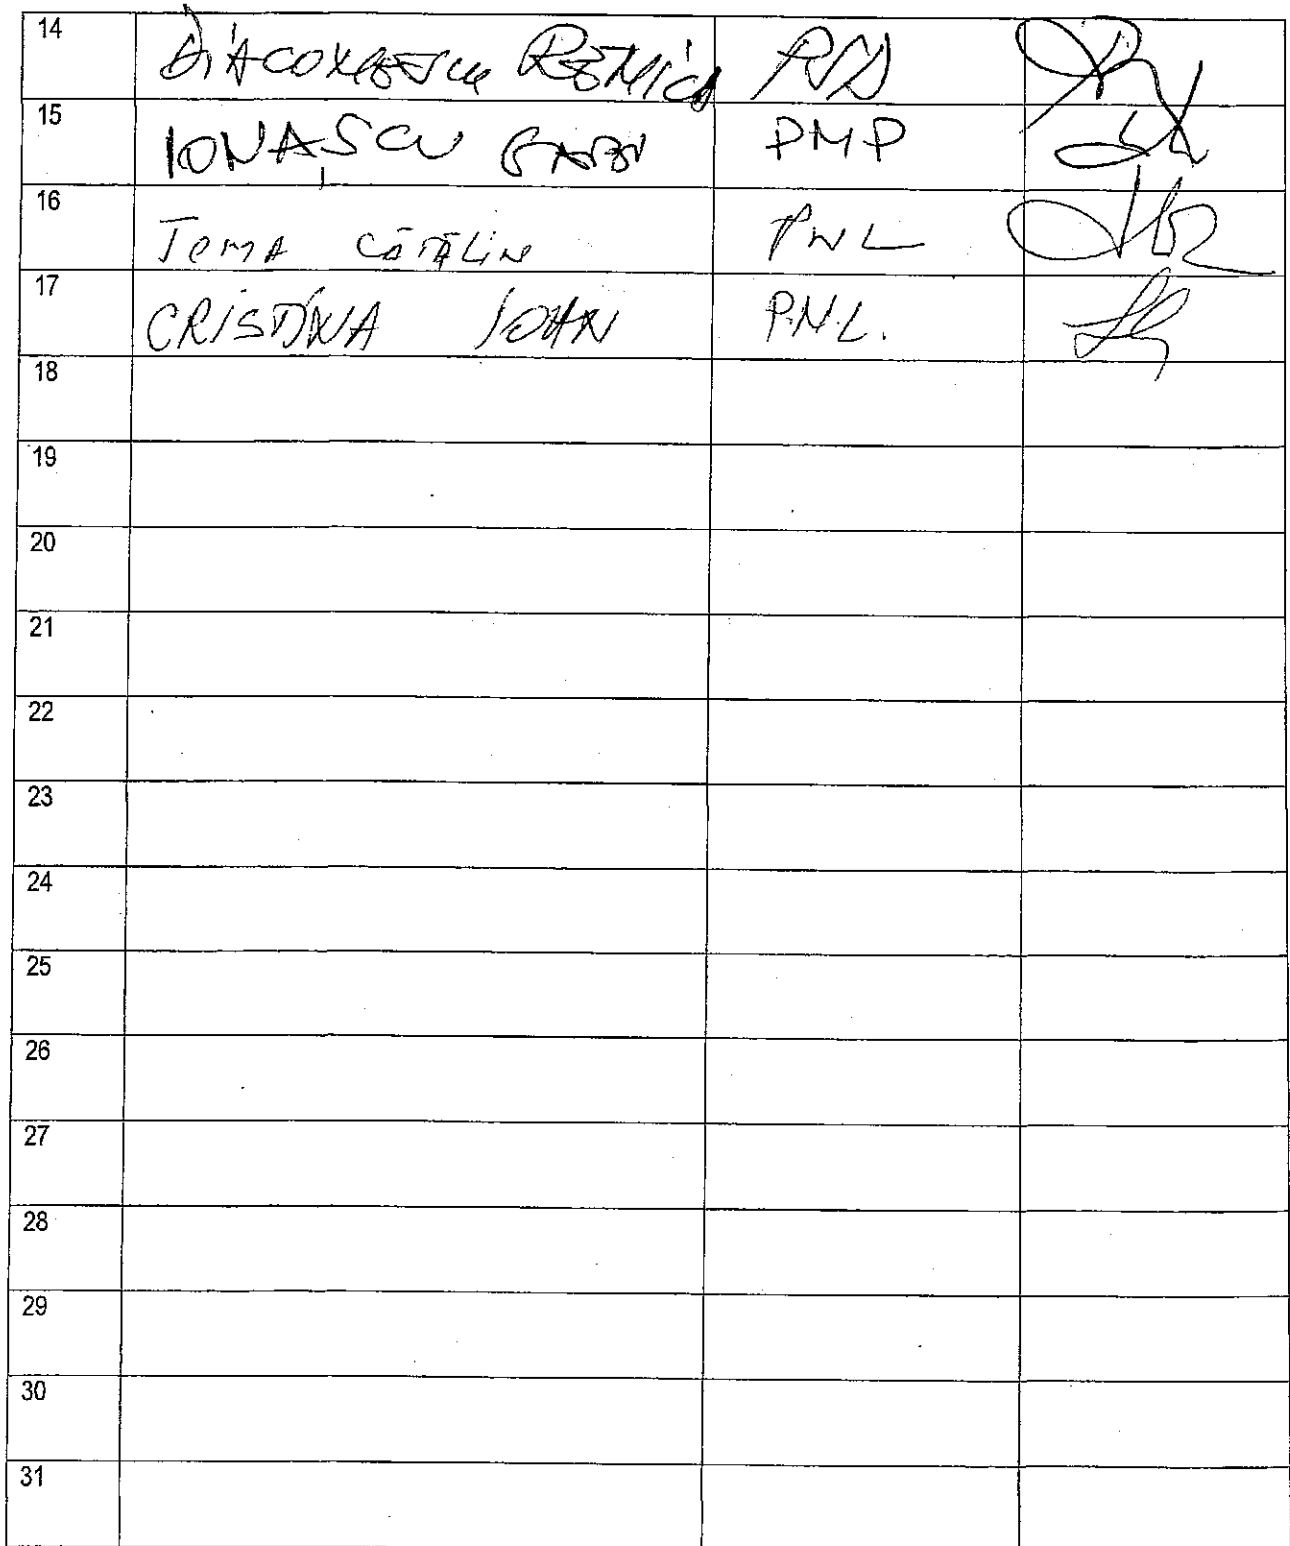 14 DIACONESCU ROMICA PSD
15 IONAȘCU GABI PMP
16 TOMA CĂTĂLIN PNL
17 CRISTINA IOAN P.N.L.
18
19
20
21
22
23
24
25
26
27
28
29
30
31